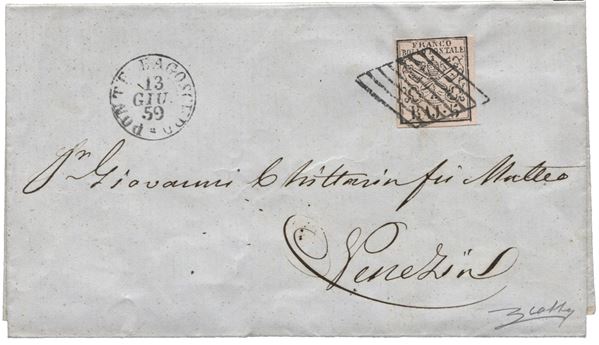 PONTE LAGOSCURO
13
GIU.
59
FRANCO
BOLLO POSTALE
BAJ. 5
Sr. Giovanni Chittarin fù Matteo
Venezia